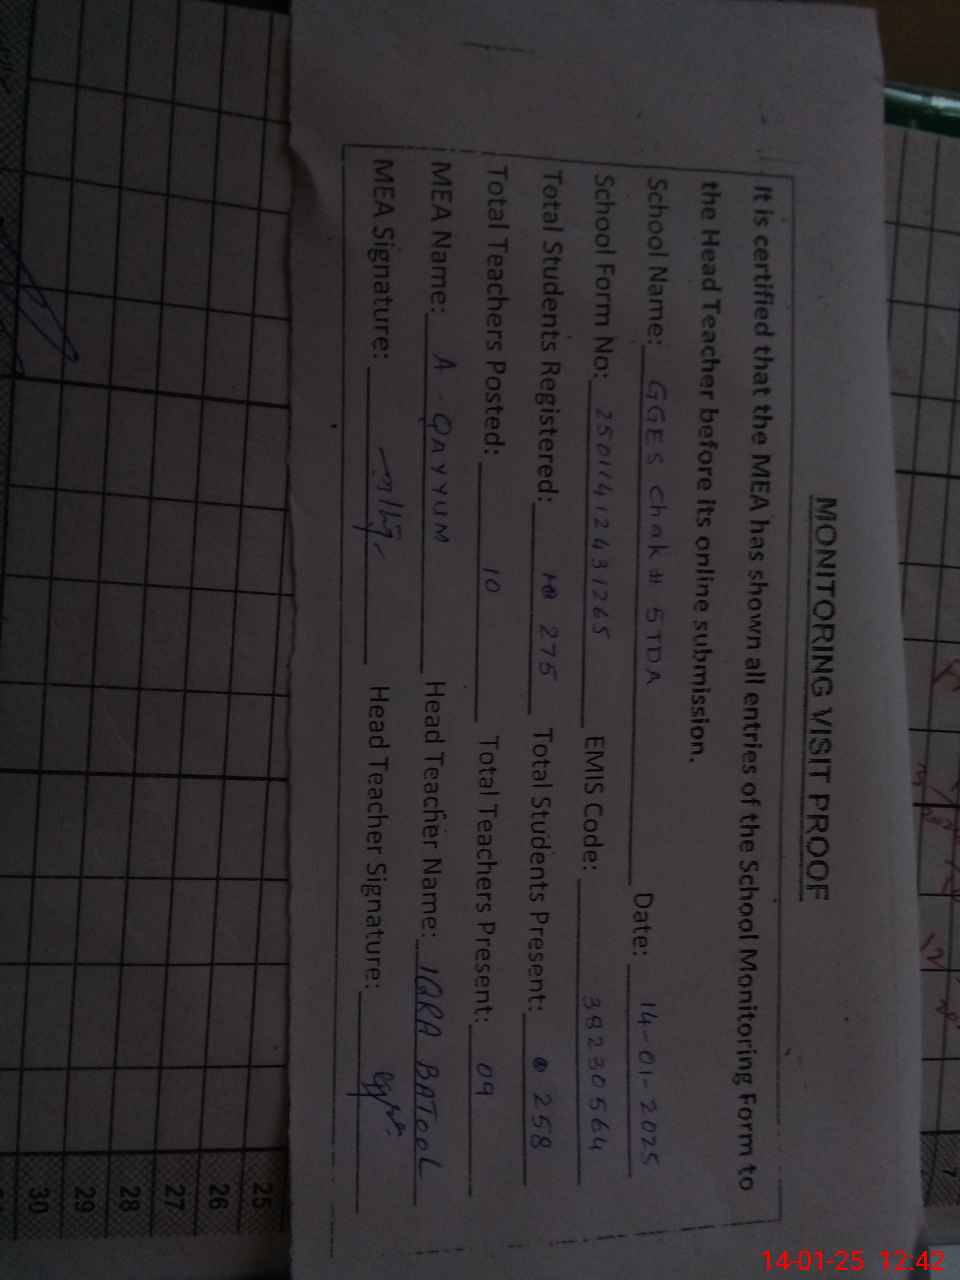 MONITORING VISIT PROOF
It is certified that the MEA has shown all entries of the School Monitoring Form to
the Head Teacher before its online submission.
School Name: GGES Chak # 5TDA Date: 14-01-2025
School Form No: 25011412431265 EMIS Code: 38230564
Total Students Registered: 275 Total Students Present: 258
Total Teachers Posted: 10 Total Teachers Present: 09
MEA Name: A. QAYYUM Head Teacher Name: IQRA BATOOL
MEA Signature: Head Teacher Signature:
25
26
27
28
29
30
7
14-01-25 12:42